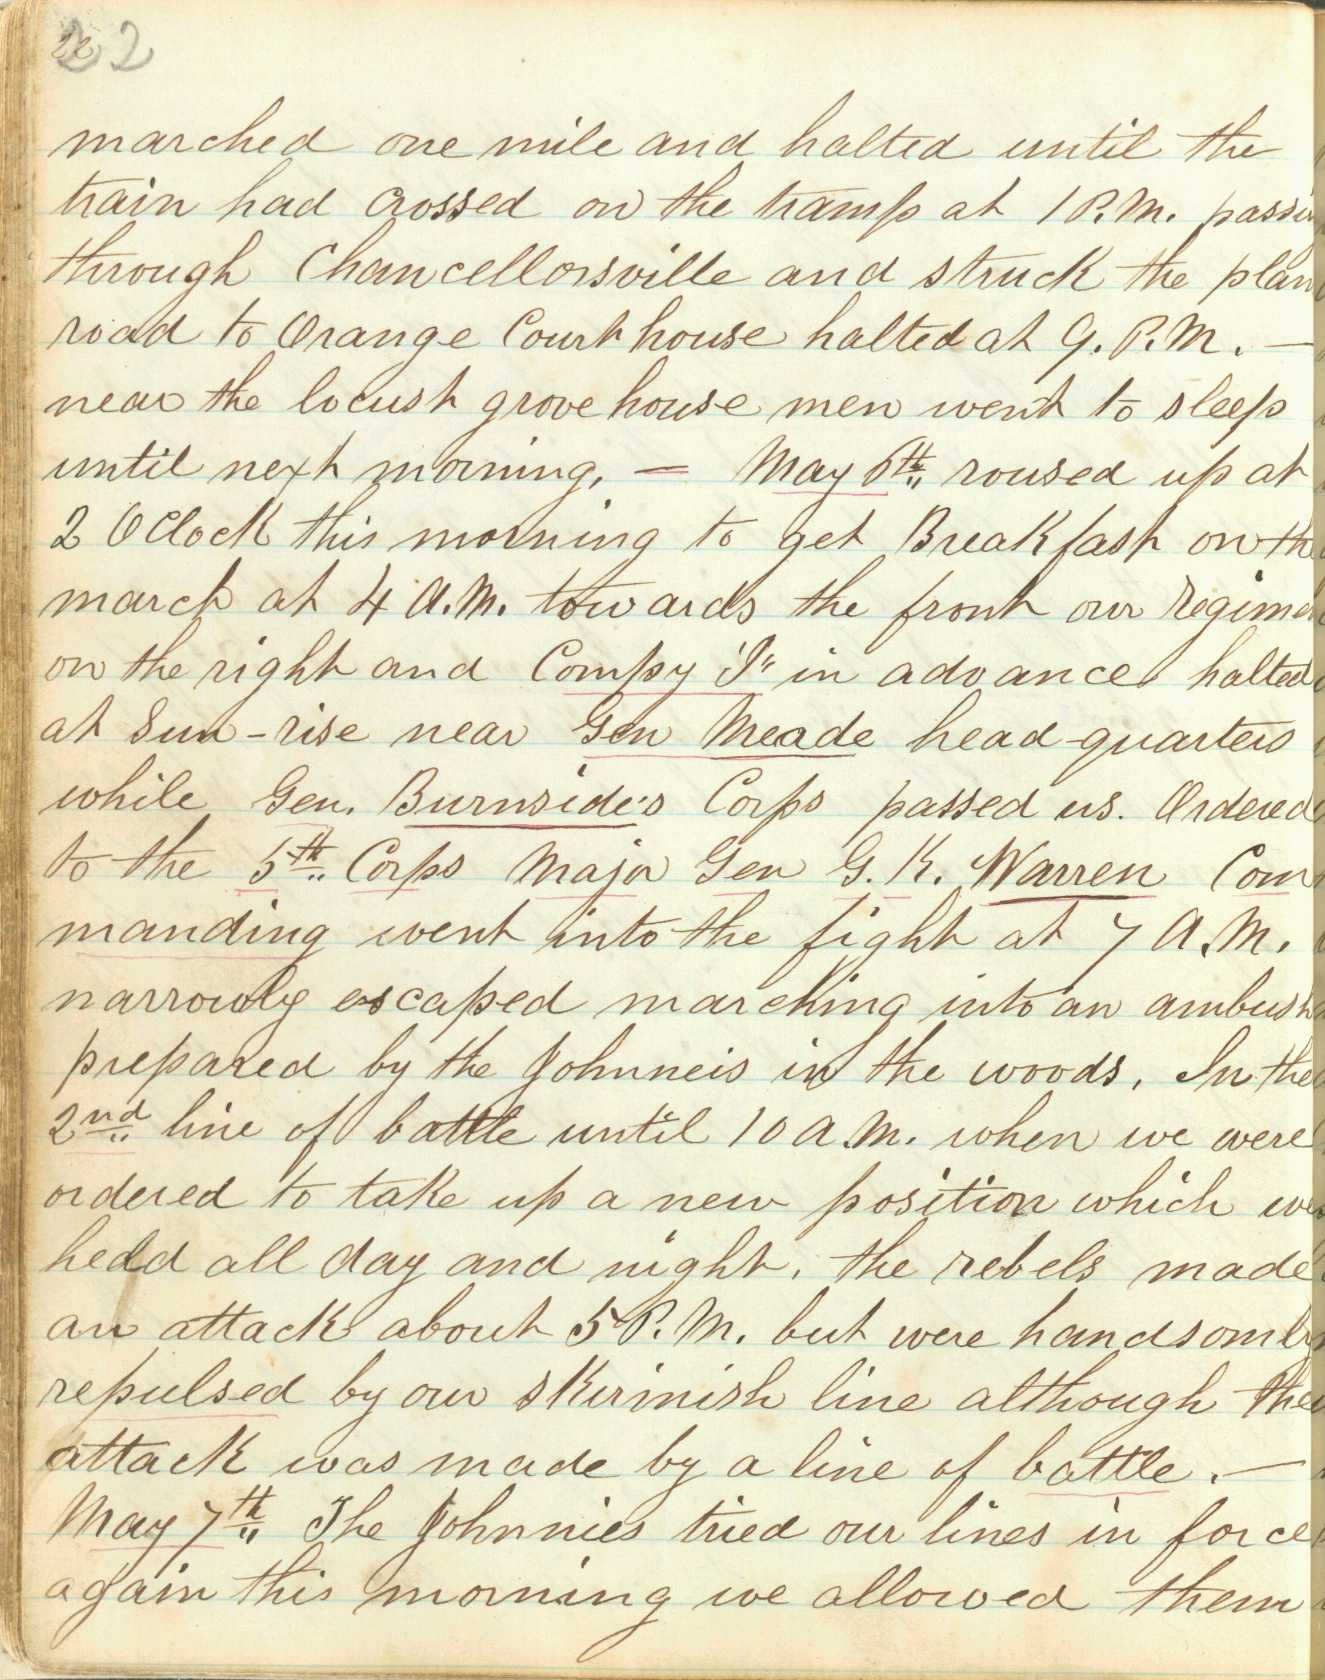 22
marched one mile and halted until the
train had crossed on the tramp at 1 P.M. passin
through Chancellorsville and struck the plan
road to Orange Court house halted at 9. P.M. —
near the locust grove house men went to sleep
until next morning. — May 6th roused up at
2 OClock this morning to get Breakfast on the
march at 4 A.M. towards the front our regimen
on the right and Compy "I" in advance halted
at Sun-rise near Gen Meade head-quarters
while Gen. Burnside's Corps passed us. Ordered
to the 5th Corps Major Gen G. K. Warren Com
manding went into the fight at 7 A.M.
narrowly escaped marching into an ambush
prepared by the Johnneis in the woods. In the
2nd line of battle until 10 a.m. when we were
ordered to take up a new position which we
held all day and night. the rebels made
an attack about 5 P.M. but were handsomly
repulsed by our skirmish line although the
attack was made by a line of battle. —
May 7th The Johnnies tried our lines in force
again this morning we allowed them